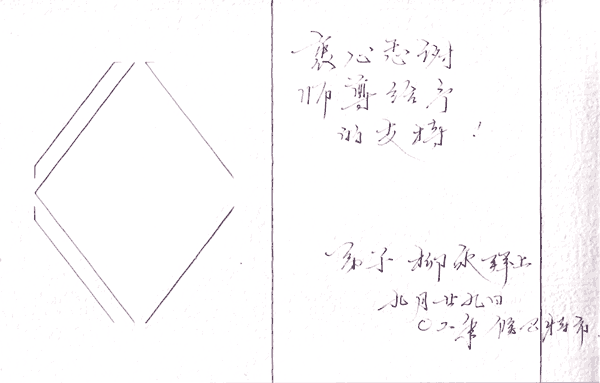 衷心感谢
师尊给予
的支持！
弟子 柳敬 拜上
九月廿九日
〇二年